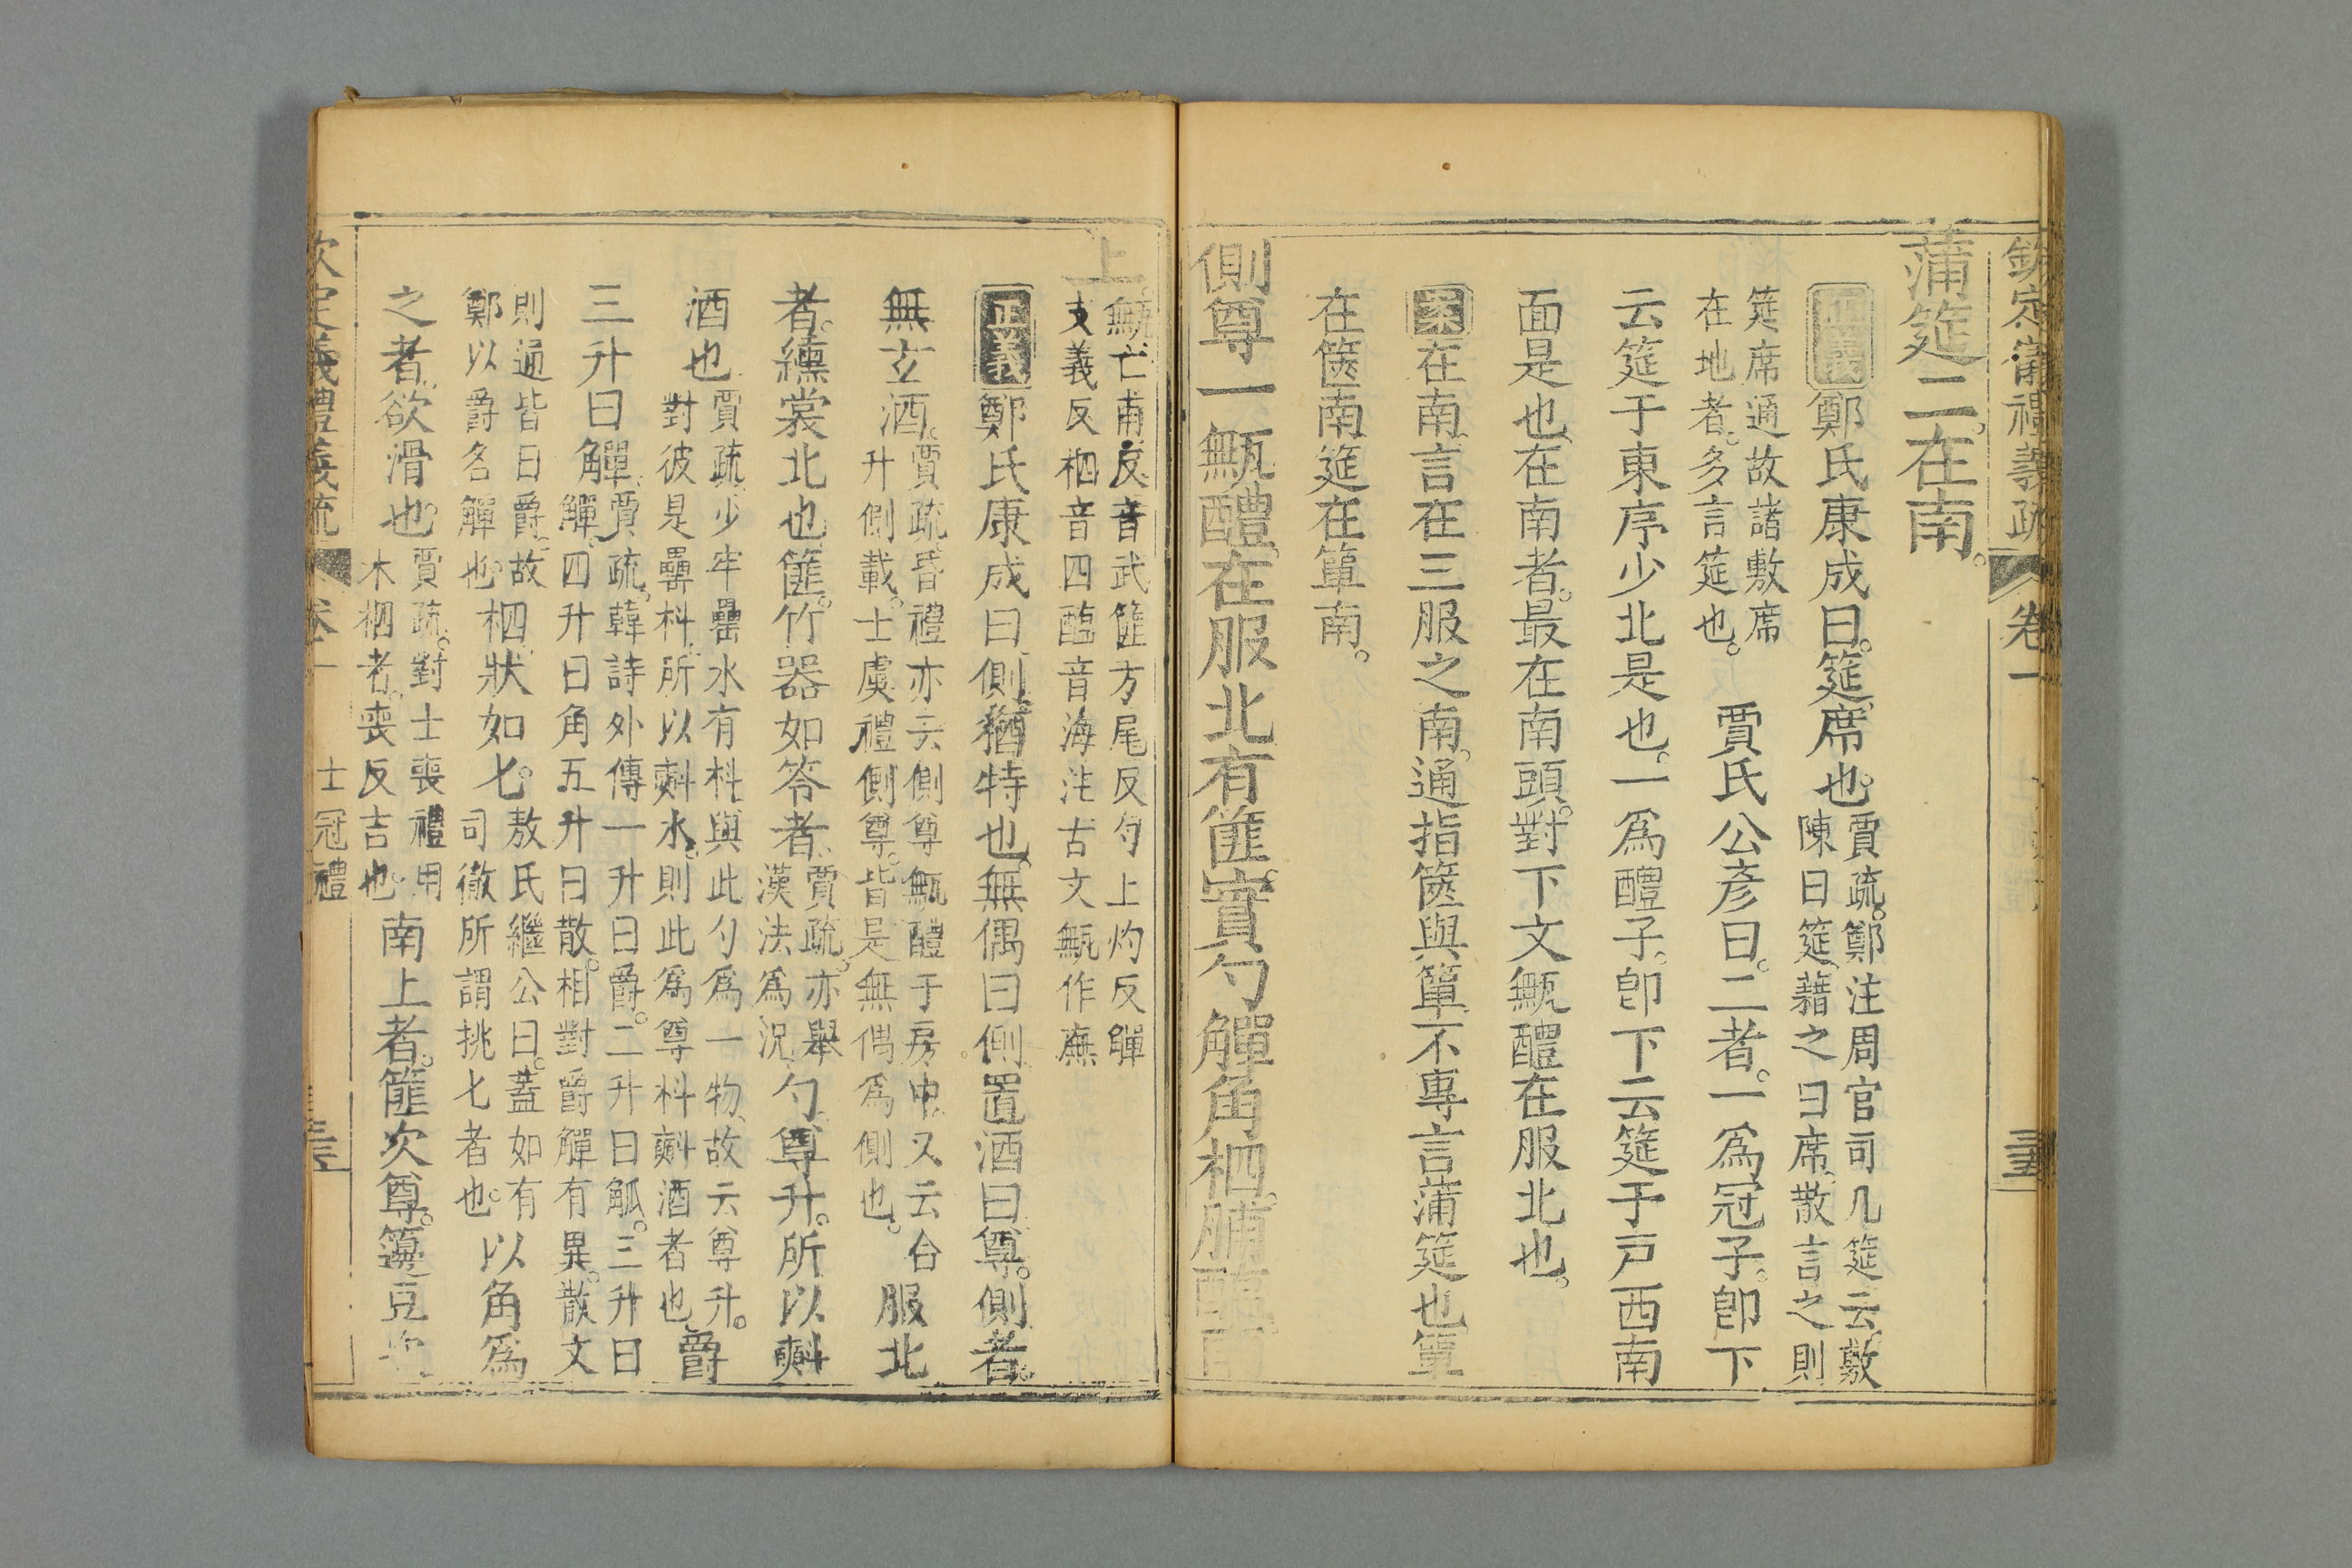 欽定儀禮義疏 卷一
蒲筵二在南。
正義 鄭氏康成曰。筵席也。賈疏。鄭注周官司几筵云。敷
陳曰筵。藉之曰席。散言之則
筵席通故諸敷席
在地者。多言筵也。賈氏公彥曰。二者。一爲冠子。卽下
云筵于東序少北是也。一爲醴子。卽下云筵于戶西南
面是也。在南者。最在南頭。對下文甒醴在服北也。
案 在南。言在三服之南。通指篋與簞。不專言蒲筵也。簞
在篋南。筵在簞南。
側尊一甒醴。在服北。有篚。實勺觶角柶。脯醢南
上
甒亡甫反。音武篚方尾反勺上灼反觶
支義反柶音四醢音海注古文甒作廡
正義 鄭氏康成曰。側猶特也。無偶曰側。置酒曰尊。側者。
無玄酒。賈疏。昏禮亦云側尊甒醴于房中。又云合
升側載。士虞禮側尊。皆是無偶爲側也。服北
者。纁裳北也。篚。竹器如笭者。賈疏。亦舉
漢法爲況。勺。尊升。所以㪺
酒也。賈疏。少牢罍水有枓。與此勺爲一物。故云尊升。
對彼是罍枓。所以㪺水。則此爲尊枓㪺酒者也。爵
三升曰觶。賈疏。韓詩外傳一升曰爵。二升曰觚。三升曰
觶。四升曰角五升曰散。相對爵觶有異。散文
則通皆曰爵。故
鄭以爵名觶也。柶。狀如匕。敖氏繼公曰。蓋如有
司徹所謂挑匕者也。以角爲
之者。欲滑也。賈疏。對士喪禮用
木柶者。喪反吉也。南上者。篚次尊。籩豆次
欽定儀禮義疏 卷一 士冠禮